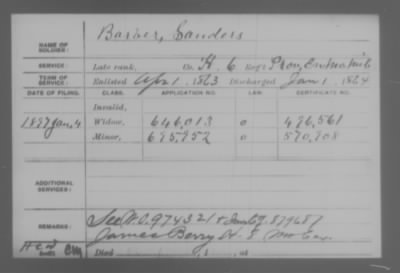 NAME OF SOLDIER: Barber, Sanders
SERVICE: Late rank, Co. H. 6 Reg't Prov. En. Mo. Mil.
TERM OF SERVICE: Enlisted Apr 1, 1863 Discharged Jan 1, 1864
DATE OF FILING. CLASS. APPLICATION NO. LAW. CERTIFICATE NO.
Invalid,
1897 Jan. 4 Widow, 646,013 0 496,561
Minor, 695,952 0 570,908
ADDITIONAL SERVICES:
REMARKS: See W.O. 974321
James Berry H. 8 Mo Cav.
Died